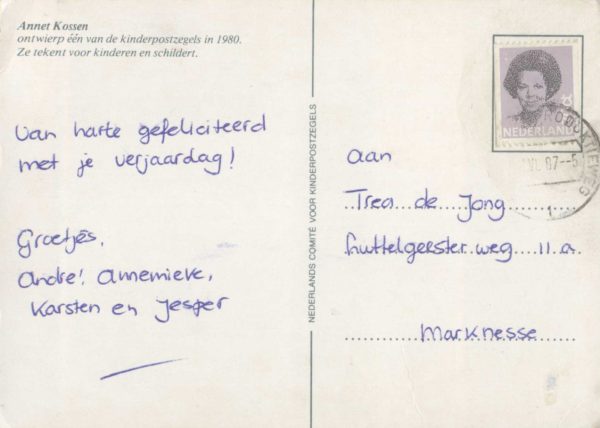 Annet Kossen
ontwierp één van de kinderpostzegels in 1980.
Ze tekent voor kinderen en schildert.
Van harte gefeliciteerd
met je verjaardag!
Groetjes,
André! Annemieke,
Karsten en Jesper
NEDERLANDS COMITÉ VOOR KINDERPOSTZEGELS
NEDERLAND
aan
Trea de Jong
Luttelgeesterweg 11a.
Marknesse